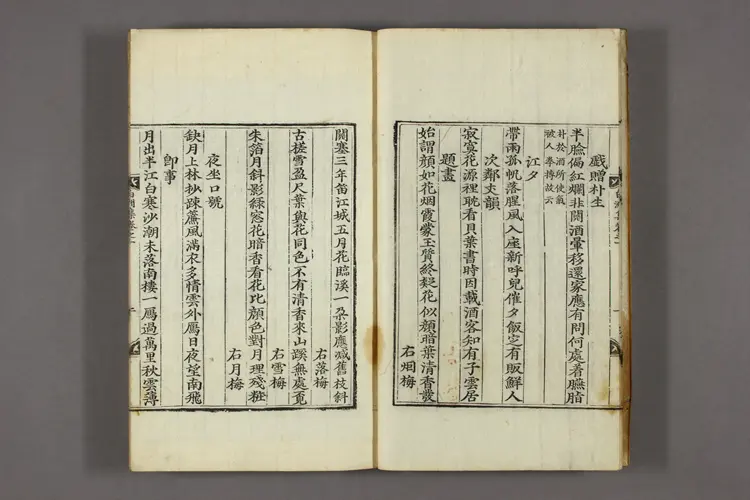 戱贈朴生
半臉偏紅爛壯鬪酒暈移還家應有問何處着臙脂
朴於酒所使氣
被人拳搏故云
江夕
帶雨孤帆落腥風入座新呼兒催夕飯定有販鮮人
次鄭丈韻
寂寞花源裡耽看貝葉書時因載酒客知有子雲居
題畫
始謂顔如花烟霞蒙玉質終疑花似顔暗葉清香發
右烟梅
關塞三年笛江城五月花臨溪一朶影應減舊枝斜
右落梅
古槎雪盈尺葉與花同色不有清香來山蹊無處覓
右雪梅
朱箔月斜影綠窓花暗香看花比顔色對月理殘粧
右月梅
夜坐口號
缺月上林杪踈簾風滿衣多情雲外鴈日夜望南飛
卽事
月出半江白寒沙潮未落南樓一鴈過萬里秋雲薄